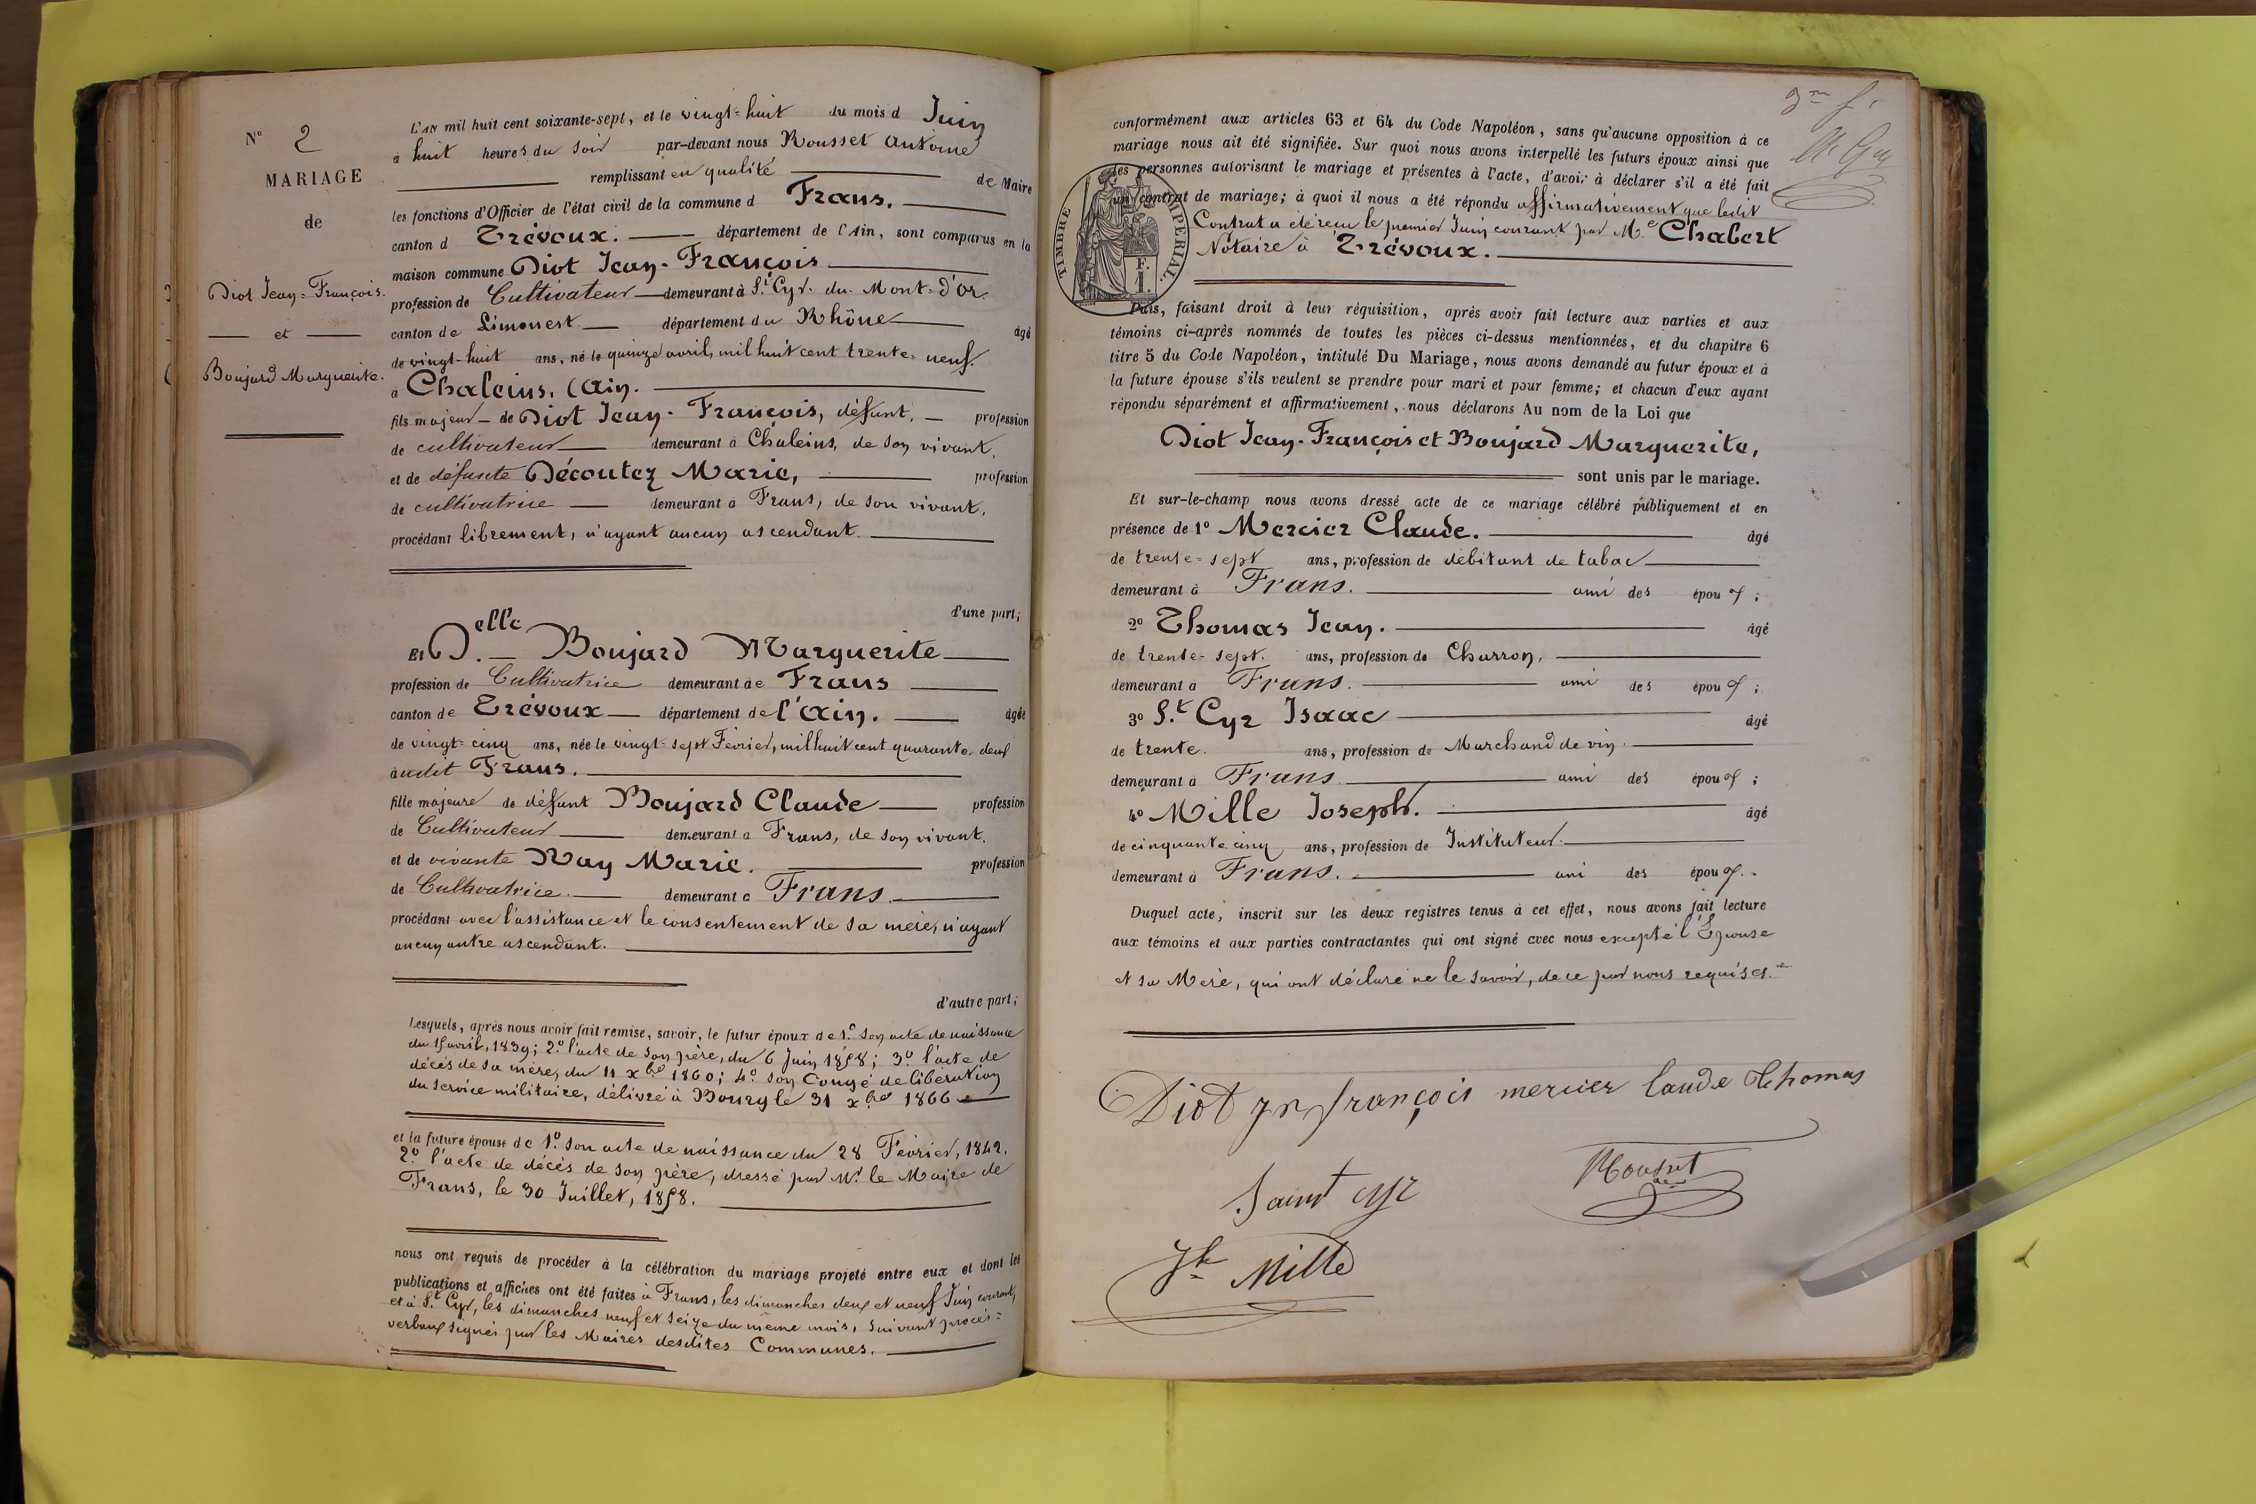 N° 2
MARIAGE
de
Diot Jean-François.
et
Boujard Marguerite.
L'AN mil huit cent soixante-sept, et le vingt-huit du mois d Juin
à huit heures du soir par-devant nous Rousset Antoine
remplissant en qualité de Maire
les fonctions d'Officier de l'état civil de la commune d Frans.
canton d Trévoux. département de l'Ain, sont comparus en la
maison commune Diot Jean-François
profession de Cultivateur demeurant à St. Cyr-du-Mont-d'Or.
canton de Limonest département du Rhône âgé
de vingt-huit ans, né le quinze avril, mil huit cent trente-neuf.
à Chaleins, (Ain.
fils majeur de Diot Jean-François, défunt, profession
de cultivateur demeurant à Chaleins, de son vivant,
et de défunte Découtez Marie, profession
de cultivatrice demeurant à Frans, de son vivant,
procédant librement, n'ayant aucun ascendant.
d'une part;
Et Delle. Boujard Marguerite
profession de Cultivatrice demeurant à Frans
canton de Trévoux département de l'Ain. âgée
de vingt-cinq ans, née le vingt-sept Février, mil huit cent quarante-deux
audit Frans.
fille majeure de défunt Boujard Claude profession
de Cultivateur demeurant à Frans, de son vivant.
et de vivante Nay Marie. profession
de Cultivatrice demeurant à Frans.
procédant avec l'assistance et le consentement de sa mère, n'ayant
aucun autre ascendant.
d'autre part;
Lesquels, après nous avoir fait remise, savoir, le futur époux de 1.° son acte de naissance
du 15 avril, 1839; 2.° l'acte de son père, du 6 Juin 1858; 3.° l'acte de
décès de sa mère, du 11 xbre 1860; 4.° son Congé de libération
du service militaire, délivré à Bourg le 31 xbre 1866
et la future épouse de 1.° son acte de naissance du 28 Février, 1842.
2.° l'acte de décès de son père, dressé par Mr. le Maire de
Frans, le 30 Juillet, 1858.
nous ont requis de procéder à la célébration du mariage projeté entre eux et dont les
publications et affiches ont été faites à Frans, les dimanches deux et neuf Juin courant,
et à St. Cyr, les dimanches neuf et seize du même mois, suivant procès-
verbaux signés par les Maires desdites Communes.
conformément aux articles 63 et 64 du Code Napoléon, sans qu'aucune opposition à ce
mariage nous ait été signifiée. Sur quoi nous avons interpellé les futurs époux ainsi que
les personnes autorisant le mariage et présentes à l'acte, d'avoir à déclarer s'il a été fait
un contrat de mariage; à quoi il nous a été répondu affirmativement que ledit
Contrat a été reçu le premier Juin courant par Me. Chabert
Notaire à Trévoux.
TIMBRE IMPÉRIAL.
F.
1.
Puis, faisant droit à leur réquisition, après avoir fait lecture aux parties et aux
témoins ci-après nommés de toutes les pièces ci-dessus mentionnées, et du chapitre 6
titre 5 du Code Napoléon, intitulé Du Mariage, nous avons demandé au futur époux et à
la future épouse s'ils veulent se prendre pour mari et pour femme; et chacun d'eux ayant
répondu séparément et affirmativement, nous déclarons Au nom de la Loi que
Diot Jean-François et Boujard Marguerite,
sont unis par le mariage.
Et sur-le-champ nous avons dressé acte de ce mariage célébré publiquement et en
présence de 1° Mercier Claude. âgé
de trente-sept ans, profession de débitant de tabac
demeurant à Frans. ami des époux;
2° Thomas Jean. âgé
de trente-sept. ans, profession de Charron,
demeurant à Frans. ami des époux;
3° St. Cyr Isaac âgé
de trente. ans, profession de Marchand de vin.
demeurant à Frans. ami des époux;
4° Mille Joseph. âgé
de cinquante cinq ans, profession de Instituteur.
demeurant à Frans. ami des époux.
Duquel acte, inscrit sur les deux registres tenus à cet effet, nous avons fait lecture
aux témoins et aux parties contractantes qui ont signé avec nous excepté l'Épouse
et sa Mère, qui ont déclaré ne le savoir, de ce par nous requises.
Diot jn françois mercier Claude Thomas
Saint cyr
Rousset
Jh Mille